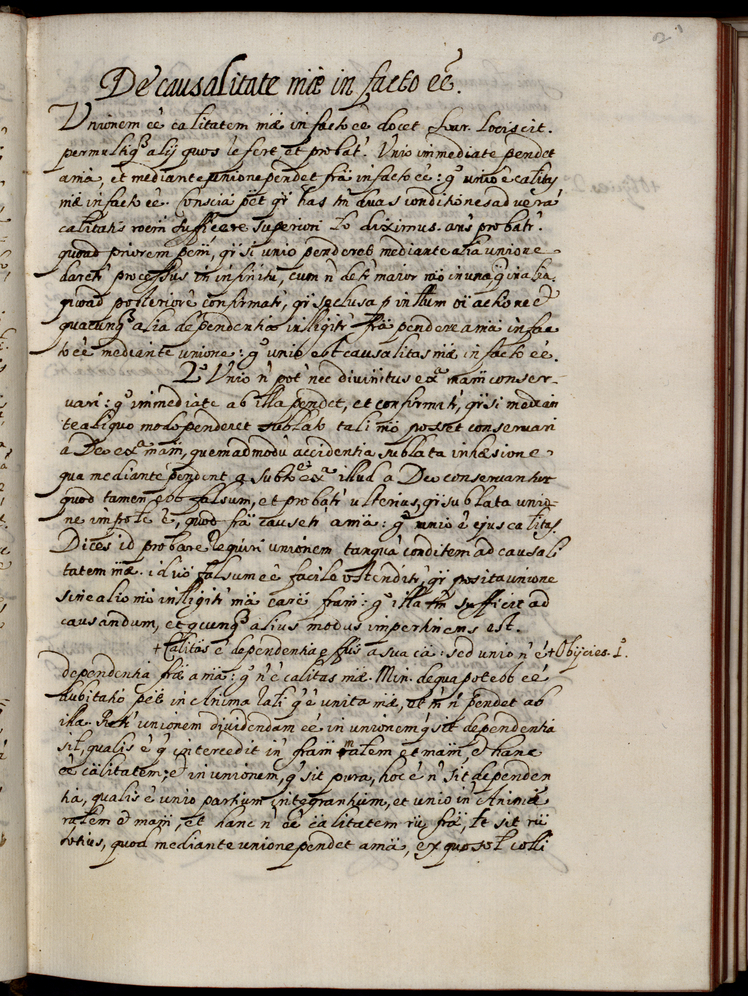 2.
De causalitate miæ in facto eê.
Unionem eê calitatem miæ in facto eê docet Suar. locis cit.
permultiq; alij quos refert et probat. Unio immediate pendet
a mâ, et mediante unione pendet frâ in facto eê: gº unio ê calitas
miæ in facto eê. pêt qî has tm duas conditiones ad verâ
calitatis roêm sufficere superiori Lo diximus. ans probatr.
quoad priorem pêm, qî si unio penderet mediante alia unione
daretr processus in infinitû, cum ñ detr maior rô in una qi in alia.
quoad posteriorê confirmatr, qî seclusa p intllum oî actione et
quacunq; alia dependentia intlligitr frâ pendere a mâ in fac
to eê mediante unione: gº unio est causalitas miæ in facto eê.
2º Unio ñ pôt nec divinitus exª mâm conser-
vari: gº immediate ab illa pendet, et confirmatr, qî si median
te aliquo modo penderet sublato tali mô posset conservari
a Deo exª mâm, quemadmodû accidentia sublata inhæsione
qua mediante pendent a subtº exª illud a Deo conservantur
quod tamen est falsum, et probatr ulterius, qî sublata unio-
ne impôle ê, quod frâ causetr a mâ: gº unio ê ejus calitas.
Dices id probare requiri unionem tanquâ conditem ad causali
tatem miæ. id vô falsum eê facile ostenditr, qî posita unione
sine alio mô intlligitr mâ carê frâm: gº illa tm sufficit ad
causandum, et qcunq; alius modus impertinens est.
+ Calitas ê dependentia effûs a sua câ: sed unio ñ ê + Obijcies. 1º.
dependentia frâ a mâ: gº ñ ê calitas miæ. Min. de qua potest eê
dubitatio pêt in Anima râli q ê unita miæ, et tm ñ pendet ab
illa. Retr unionem dividendam eê in unionem q sit dependentia
sil, qualis ê q intercedit intr frâm mâlem et mâm, et hanc
eê calitatem; et in unionem, q sit pura, hoc ê ñ sit dependen
tia, qualis ê unio partium integrantium, et unio intr Animâ
râlem et mâm, et hanc ñ eê calitatem rû frâ, ut sit rû
totius, quod mediante unione pendet a mâ, ex quo sol colli